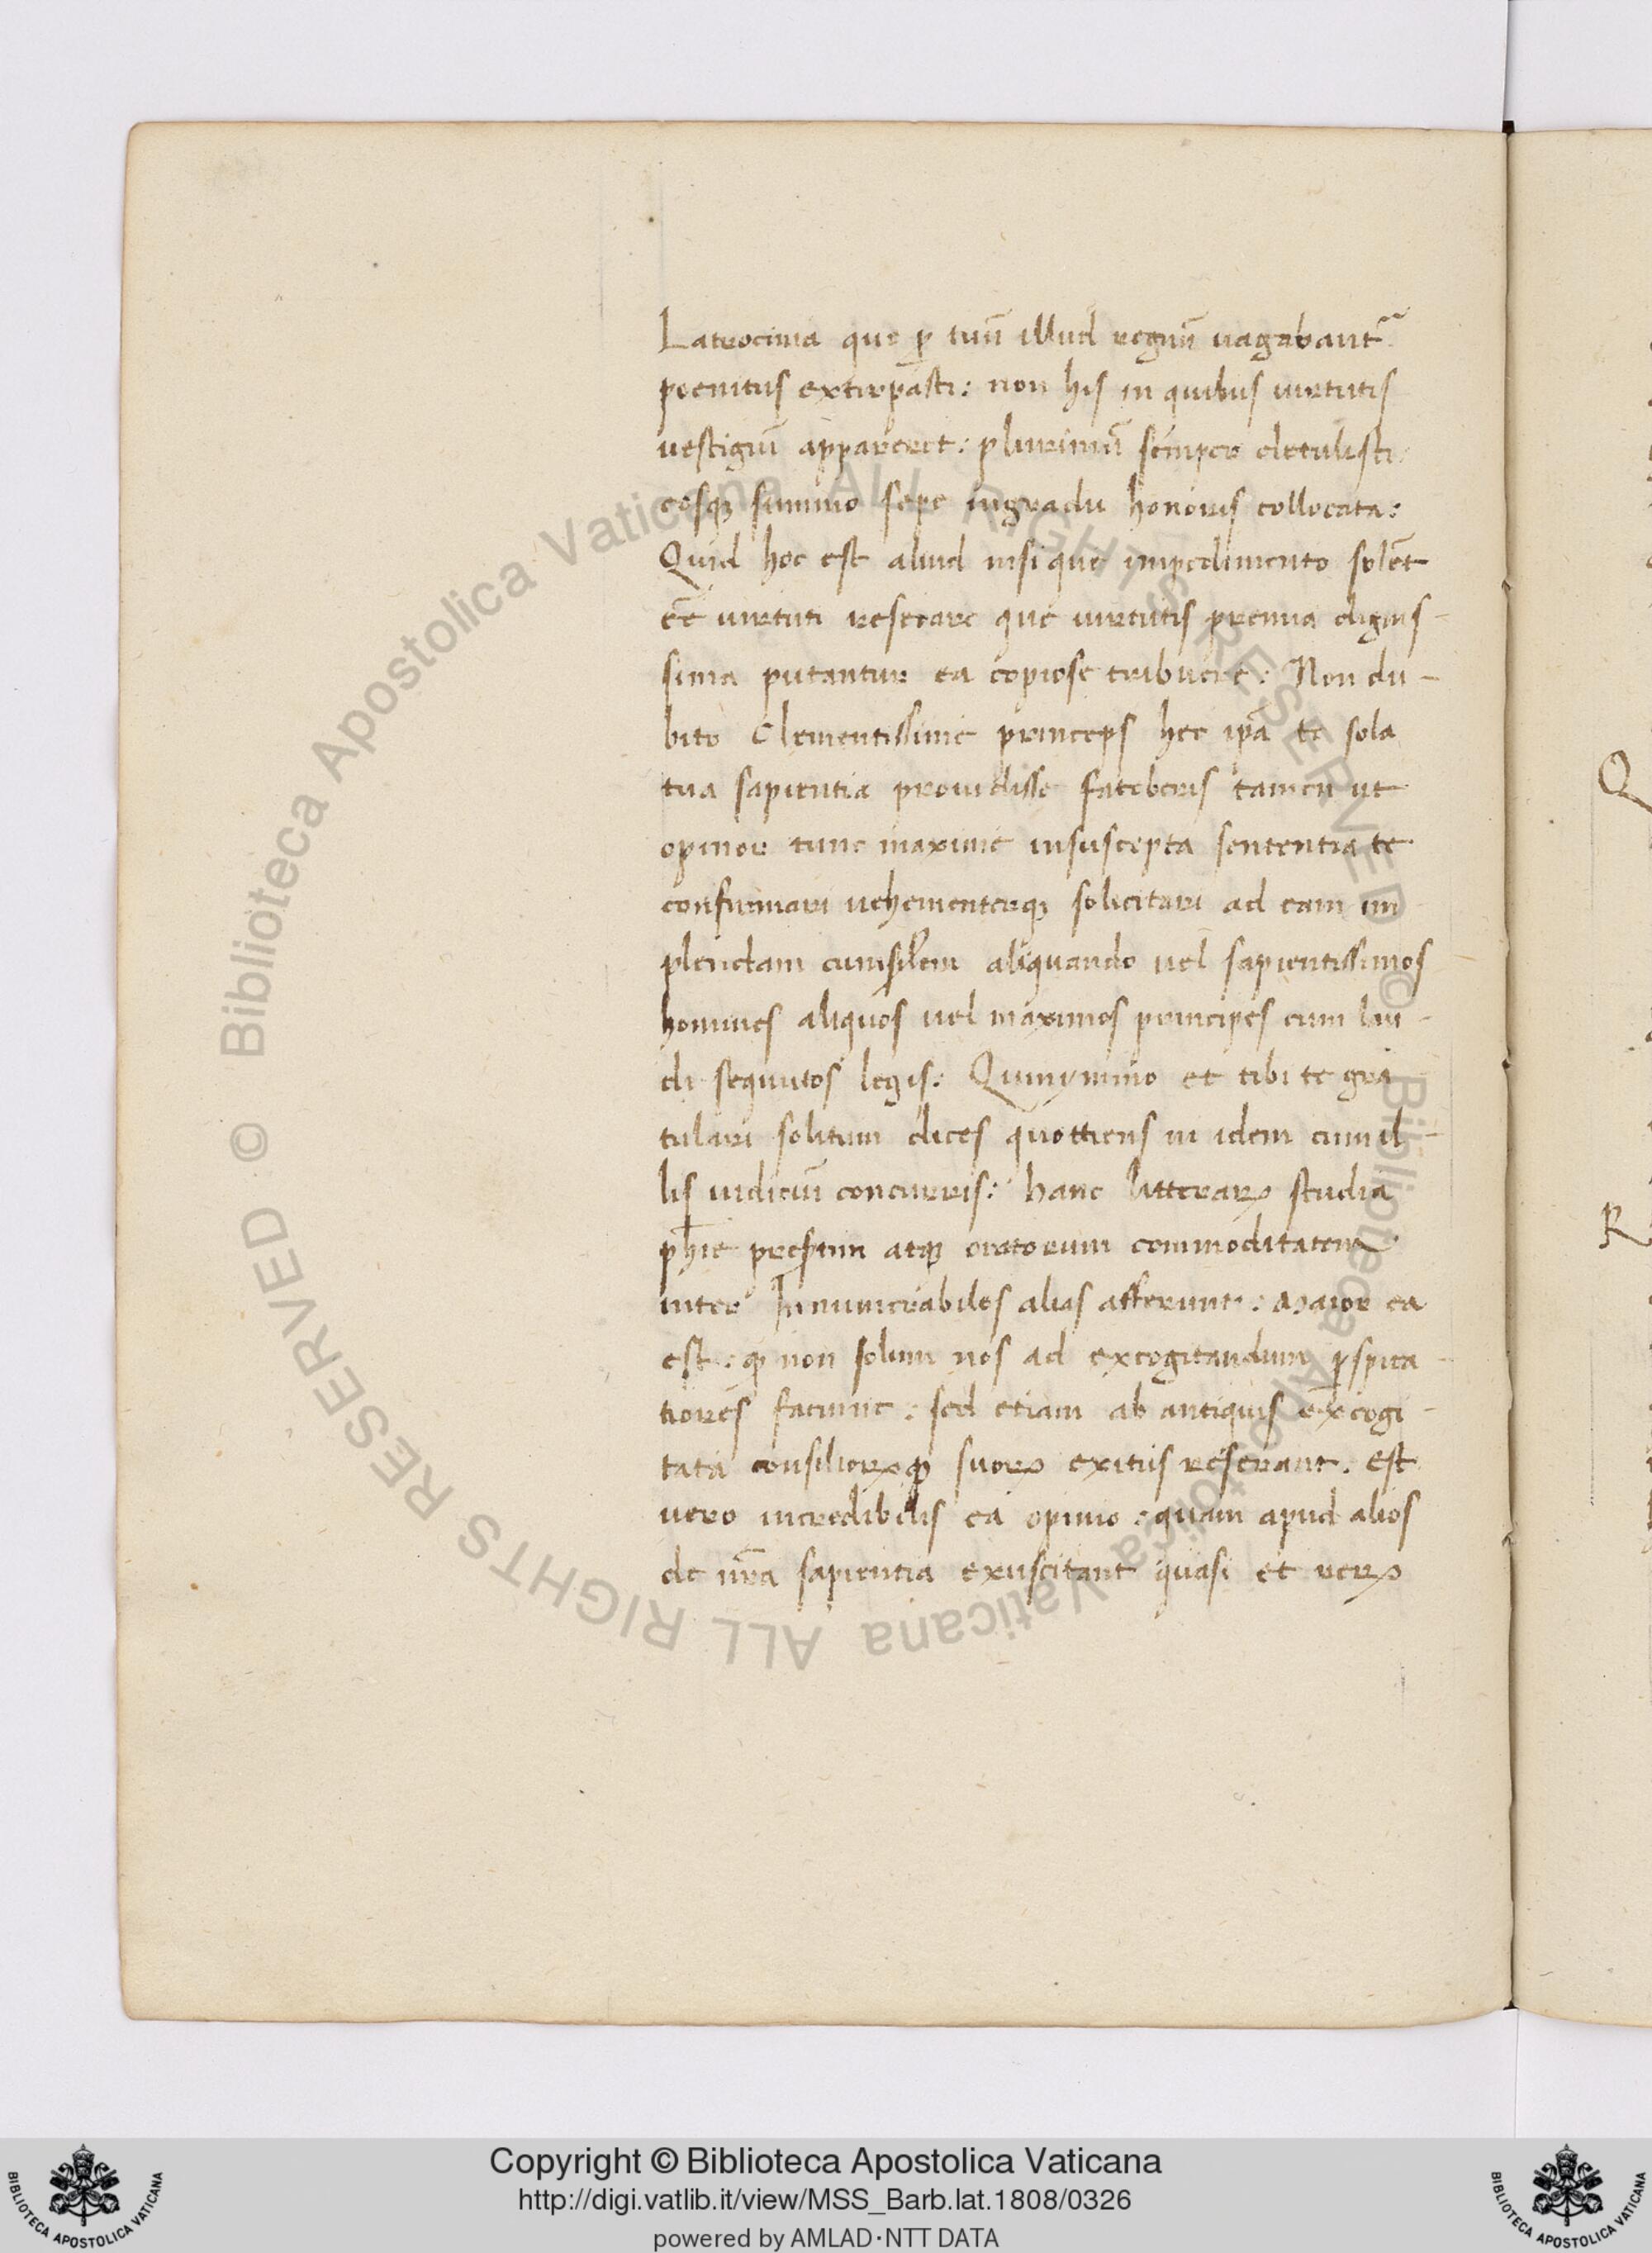 Latrocinia que ꝑ tuū illud regnū vagabant᷑
poenitus extirpasti: non his in quibus uirtutis
uestigiū appareret: plurimū semper detulisti
eosqꝫ summo sepe ingradu honoris collocata:
Quid hoc est aliud nisi que impedimento solēt
eē̄ uirtuti resecare que uirtutis premia dignis-
sima putantur ea copiose tribuere: Non du-
bito Clementissime princeps hec ip̄a te sola
tua sapientia prouidisse fateberis tamen ut
opinor tunc maxime insuscepta sententia te
confirmari uehementerqꝫ solicitari ad eam im
plendam cum aliquando uel sapientissimos
homines aliquos uel maximos principes cum lau-
di sequutos legis: Quinymmo et tibi te gra
tulari solitum dices quottiens in idem cum il-
lis iudiciū concurris: hanc litteraꝝ studia
ph̄ie presertim atqꝫ oratorum commoditatem
inter Innumerabiles alias afferunt: Maior ea
est: qꝫ non solum nos ad excogitandum ꝑspica-
tiores faciunt: sed etiam ab antiquis excogi-
tata consilioꝝqꝫ suoꝝ exitus reserant. est
vero incredibilis ea opinio: quam apud alios
de nr̄a sapientia exuscitant quasi et reꝝ
Q
R
© Biblioteca Apostolica Vaticana ALL RIGHTS RESERVED © Biblioteca Apostolica Vaticana ALL RIGHTS RESERVED
Copyright © Biblioteca Apostolica Vaticana
http://digi.vatlib.it/view/MSS_Barb.lat.1808/0326
powered by AMLAD·NTT DATA
BIBLIOTECA APOSTOLICA VATICANA
BIBLIOTECA APOSTOLICA VATICANA